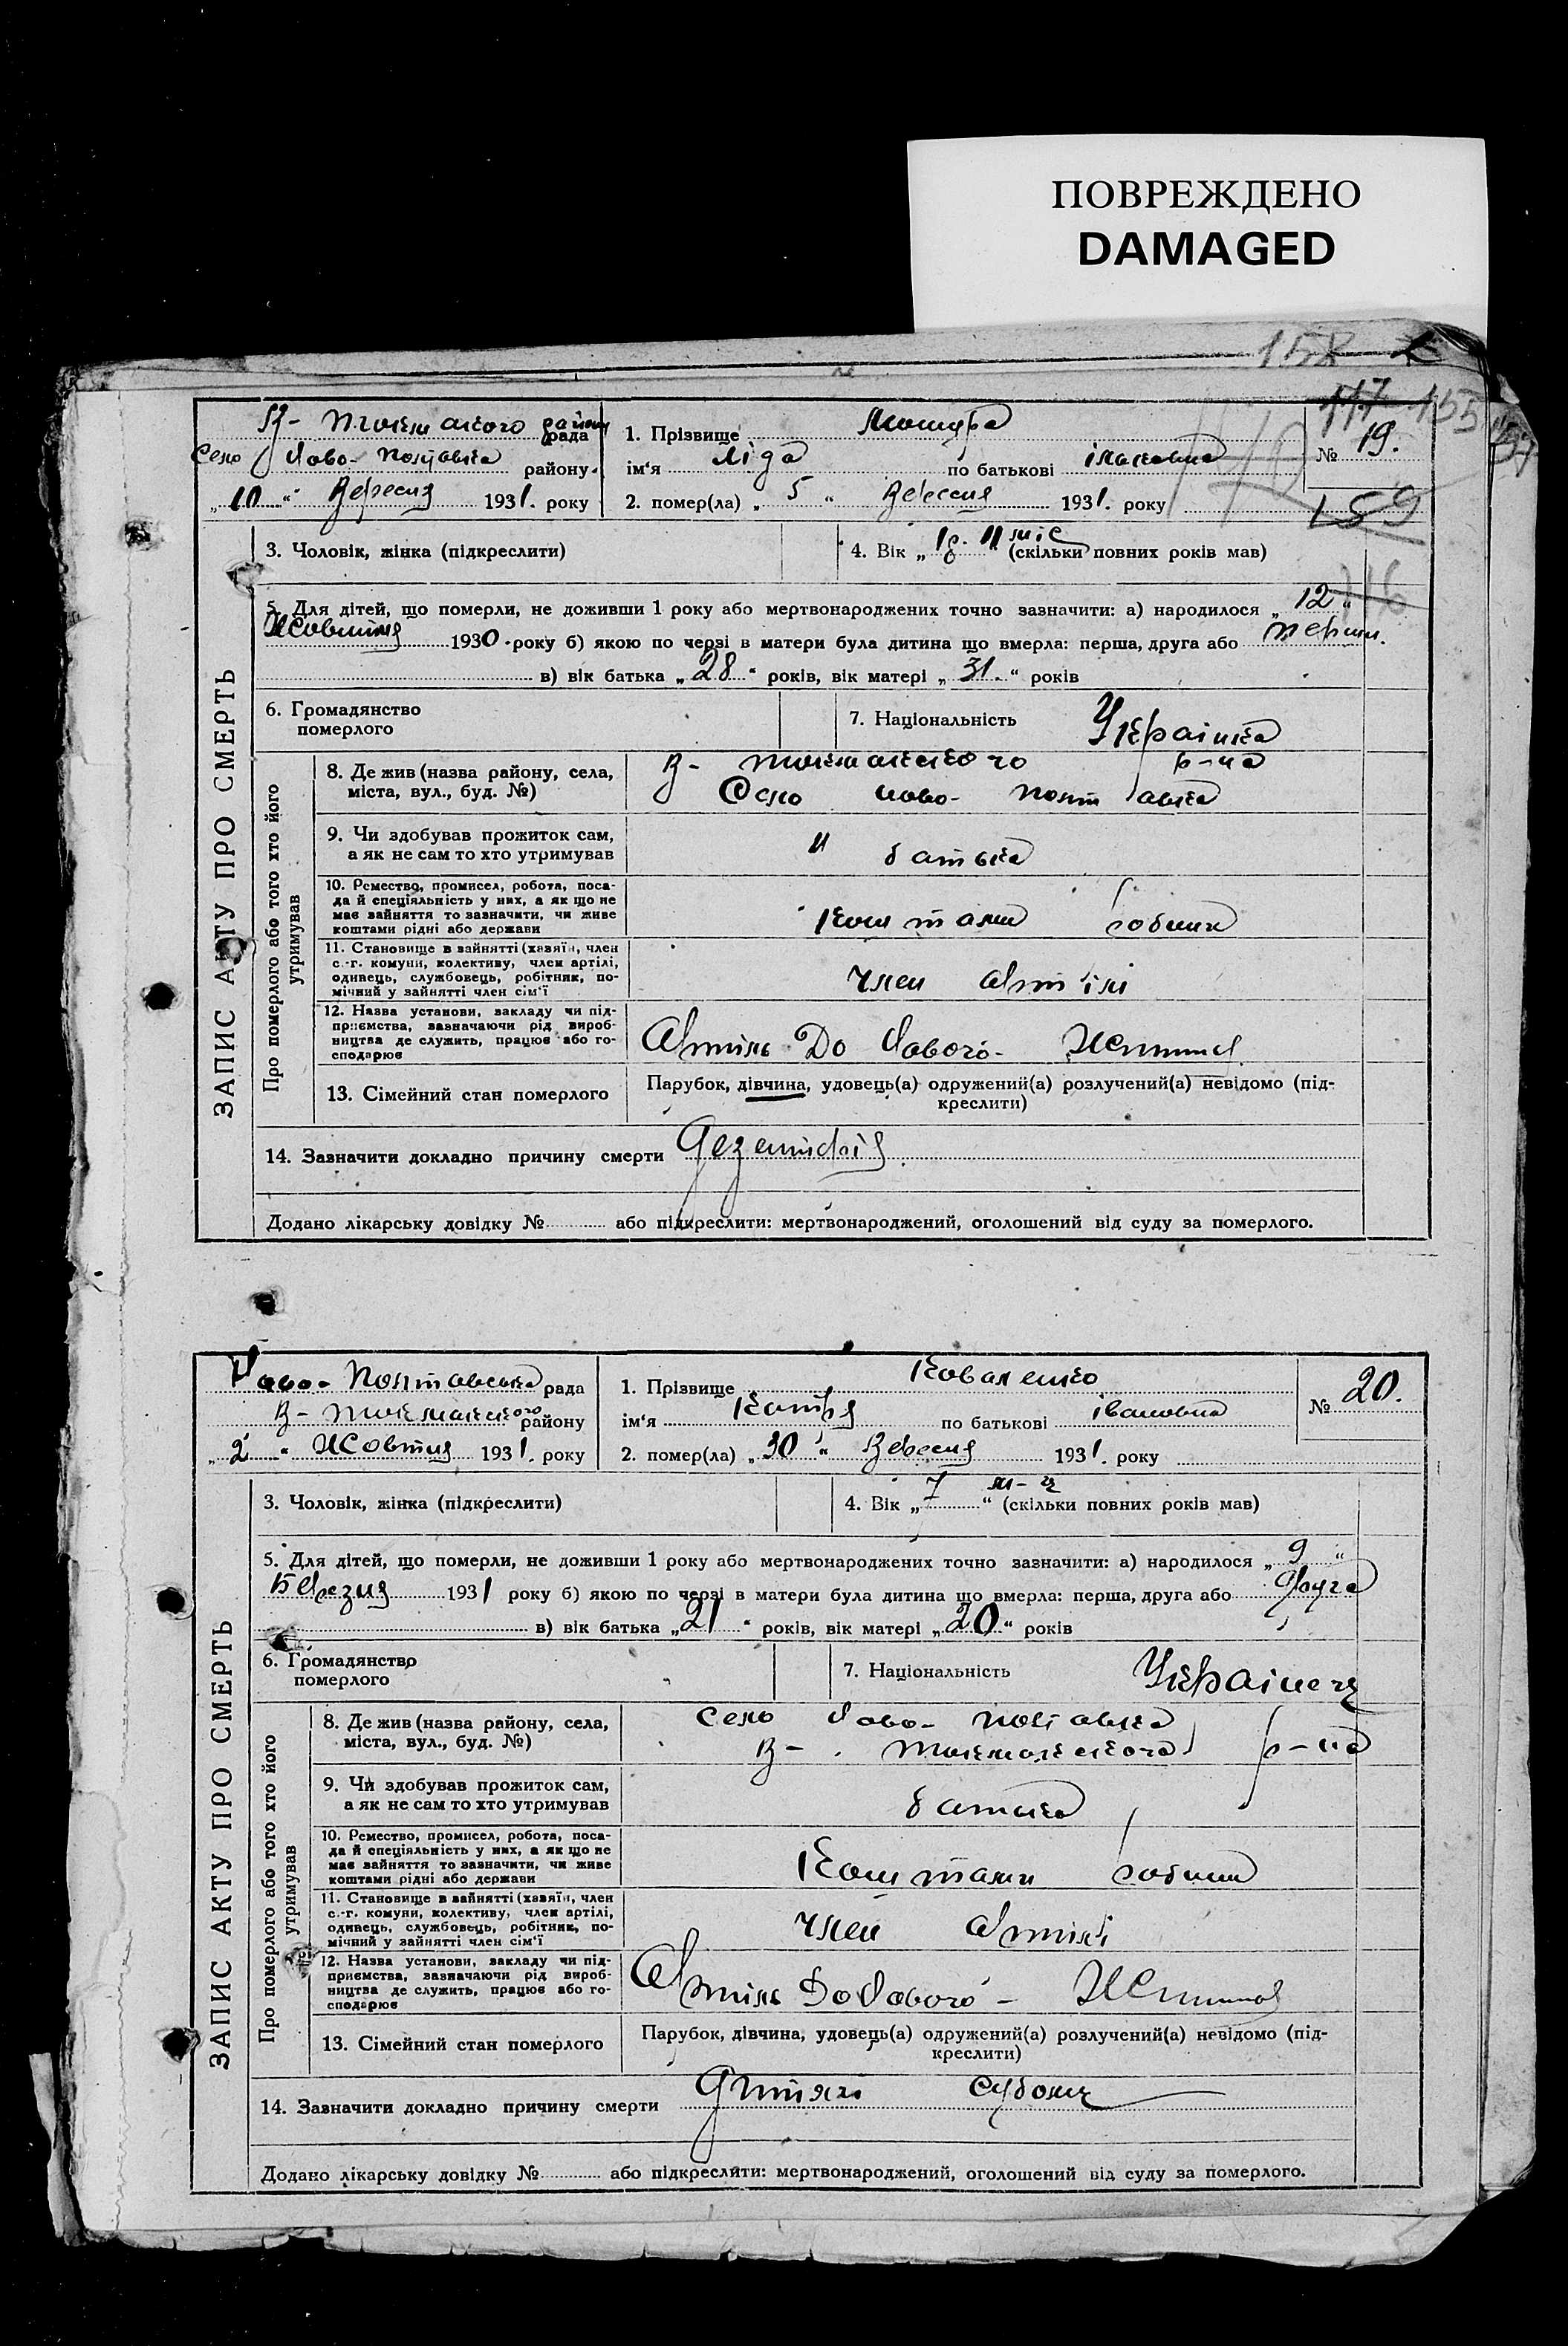 ПОВРЕЖДЕНО
DAMAGED
158
117 155
В- Токмацкого району
рада
Село Ново- Полтавка району
„ 10 “ Вересня 1931. року
1. Прізвище Мошура
ім‘я Ліда по батькові
№ 19.
2. помер(ла) „ 5 “ Вересня 1931. року
159
3. Чоловік, жінка (підкреслити)
4. Вік „ 1р. 11 міс “ (скільки повних років мав)
116
5. Для дітей, що померли, не доживши 1 року або мертвонароджених точно зазначити: а) народилося „ 12 “
Жовтня 1930 року б) якою по черзі в матери була дитина що вмерла: перша, друга або перша.
в) вік батька „ 28 “ років, вік матері „ 31. “ років
6. Громадянство
померлого
7. Національність Українка
ЗАПИС АКТУ ПРО СМЕРТЬ
Про померлого або того хто його
утримував
8. Де жив (назва району, села,
міста, вул., буд. №)
В- Токмакського р-на
Село Ново- Полтавка
9. Чи здобував прожиток сам,
а як не сам то хто утримував
батька
10. Ремество, промисел, робота, поса-
да й спеціяльність у них, а як що не
має зайняття то зазначити, чи живе
коштами рідні або держави
Коштами родини
11. Становище в зайнятті (хазяїн, член
с.-г. комуни, колективу, член артілі,
одинець, службовець, робітник, по-
мічний у зайнятті член сім‘ї
Член Артілі
12. Назва установи, закладу чи під-
приємства, зазначаючи рід вироб-
ництва де служить, працює або го-
сподарює
Артіль До Нового- Життя
13. Сімейний стан померлого
Парубок, дівчина, удовець(а) одружений(а) розлучений(а) невідомо (під-
креслити)
14. Зазначити докладно причину смерти Дезентірія
Додано лікарську довідку № або підкреслити: мертвонароджений, оголошений від суду за померлого.
Ново- Полтавська рада
В- Токмакського району
„ 2 “ Жовтня 1931. року
1. Прізвище Коваленко
ім‘я Катря по батькові івановна
№ 20.
2. помер(ла) „ 30 “ Вересня 1931. року
3. Чоловік, жінка (підкреслити)
4. Вік „ 7 м-ц “ (скільки повних років мав)
5. Для дітей, що померли, не доживши 1 року або мертвонароджених точно зазначити: а) народилося „ 9 “
Березня 1931 року б) якою по черзі в матери була дитина що вмерла: перша, друга або друга
в) вік батька „ 21 “ років, вік матері „ 20 “ років
6. Громадянство
померлого
7. Національність Українец
ЗАПИС АКТУ ПРО СМЕРТЬ
Про померлого або того хто його
утримував
8. Де жив (назва району, села,
міста, вул., буд. №)
Село Ново- Полтавка
В- Токмакського р-на
9. Чи здобував прожиток сам,
а як не сам то хто утримував
батька
10. Ремество, промисел, робота, поса-
да й спеціяльність у них, а як що не
має зайняття то зазначити, чи живе
коштами рідні або держави
Коштами родини
11. Становище в зайнятті (хазяїн, член
с.-г. комуни, колективу, член артілі,
одинець, службовець, робітник, по-
мічний у зайнятті член сім‘ї
Член Артілі
12. Назва установи, закладу чи під-
приємства, зазначаючи рід вироб-
ництва де служить, працює або го-
сподарює
Артіль До Нового- Життя
13. Сімейний стан померлого
Парубок, дівчина, удовець(а) одружений(а) розлучений(а) невідомо (під-
креслити)
14. Зазначити докладно причину смерти
Додано лікарську довідку № або підкреслити: мертвонароджений, оголошений від суду за померлого.